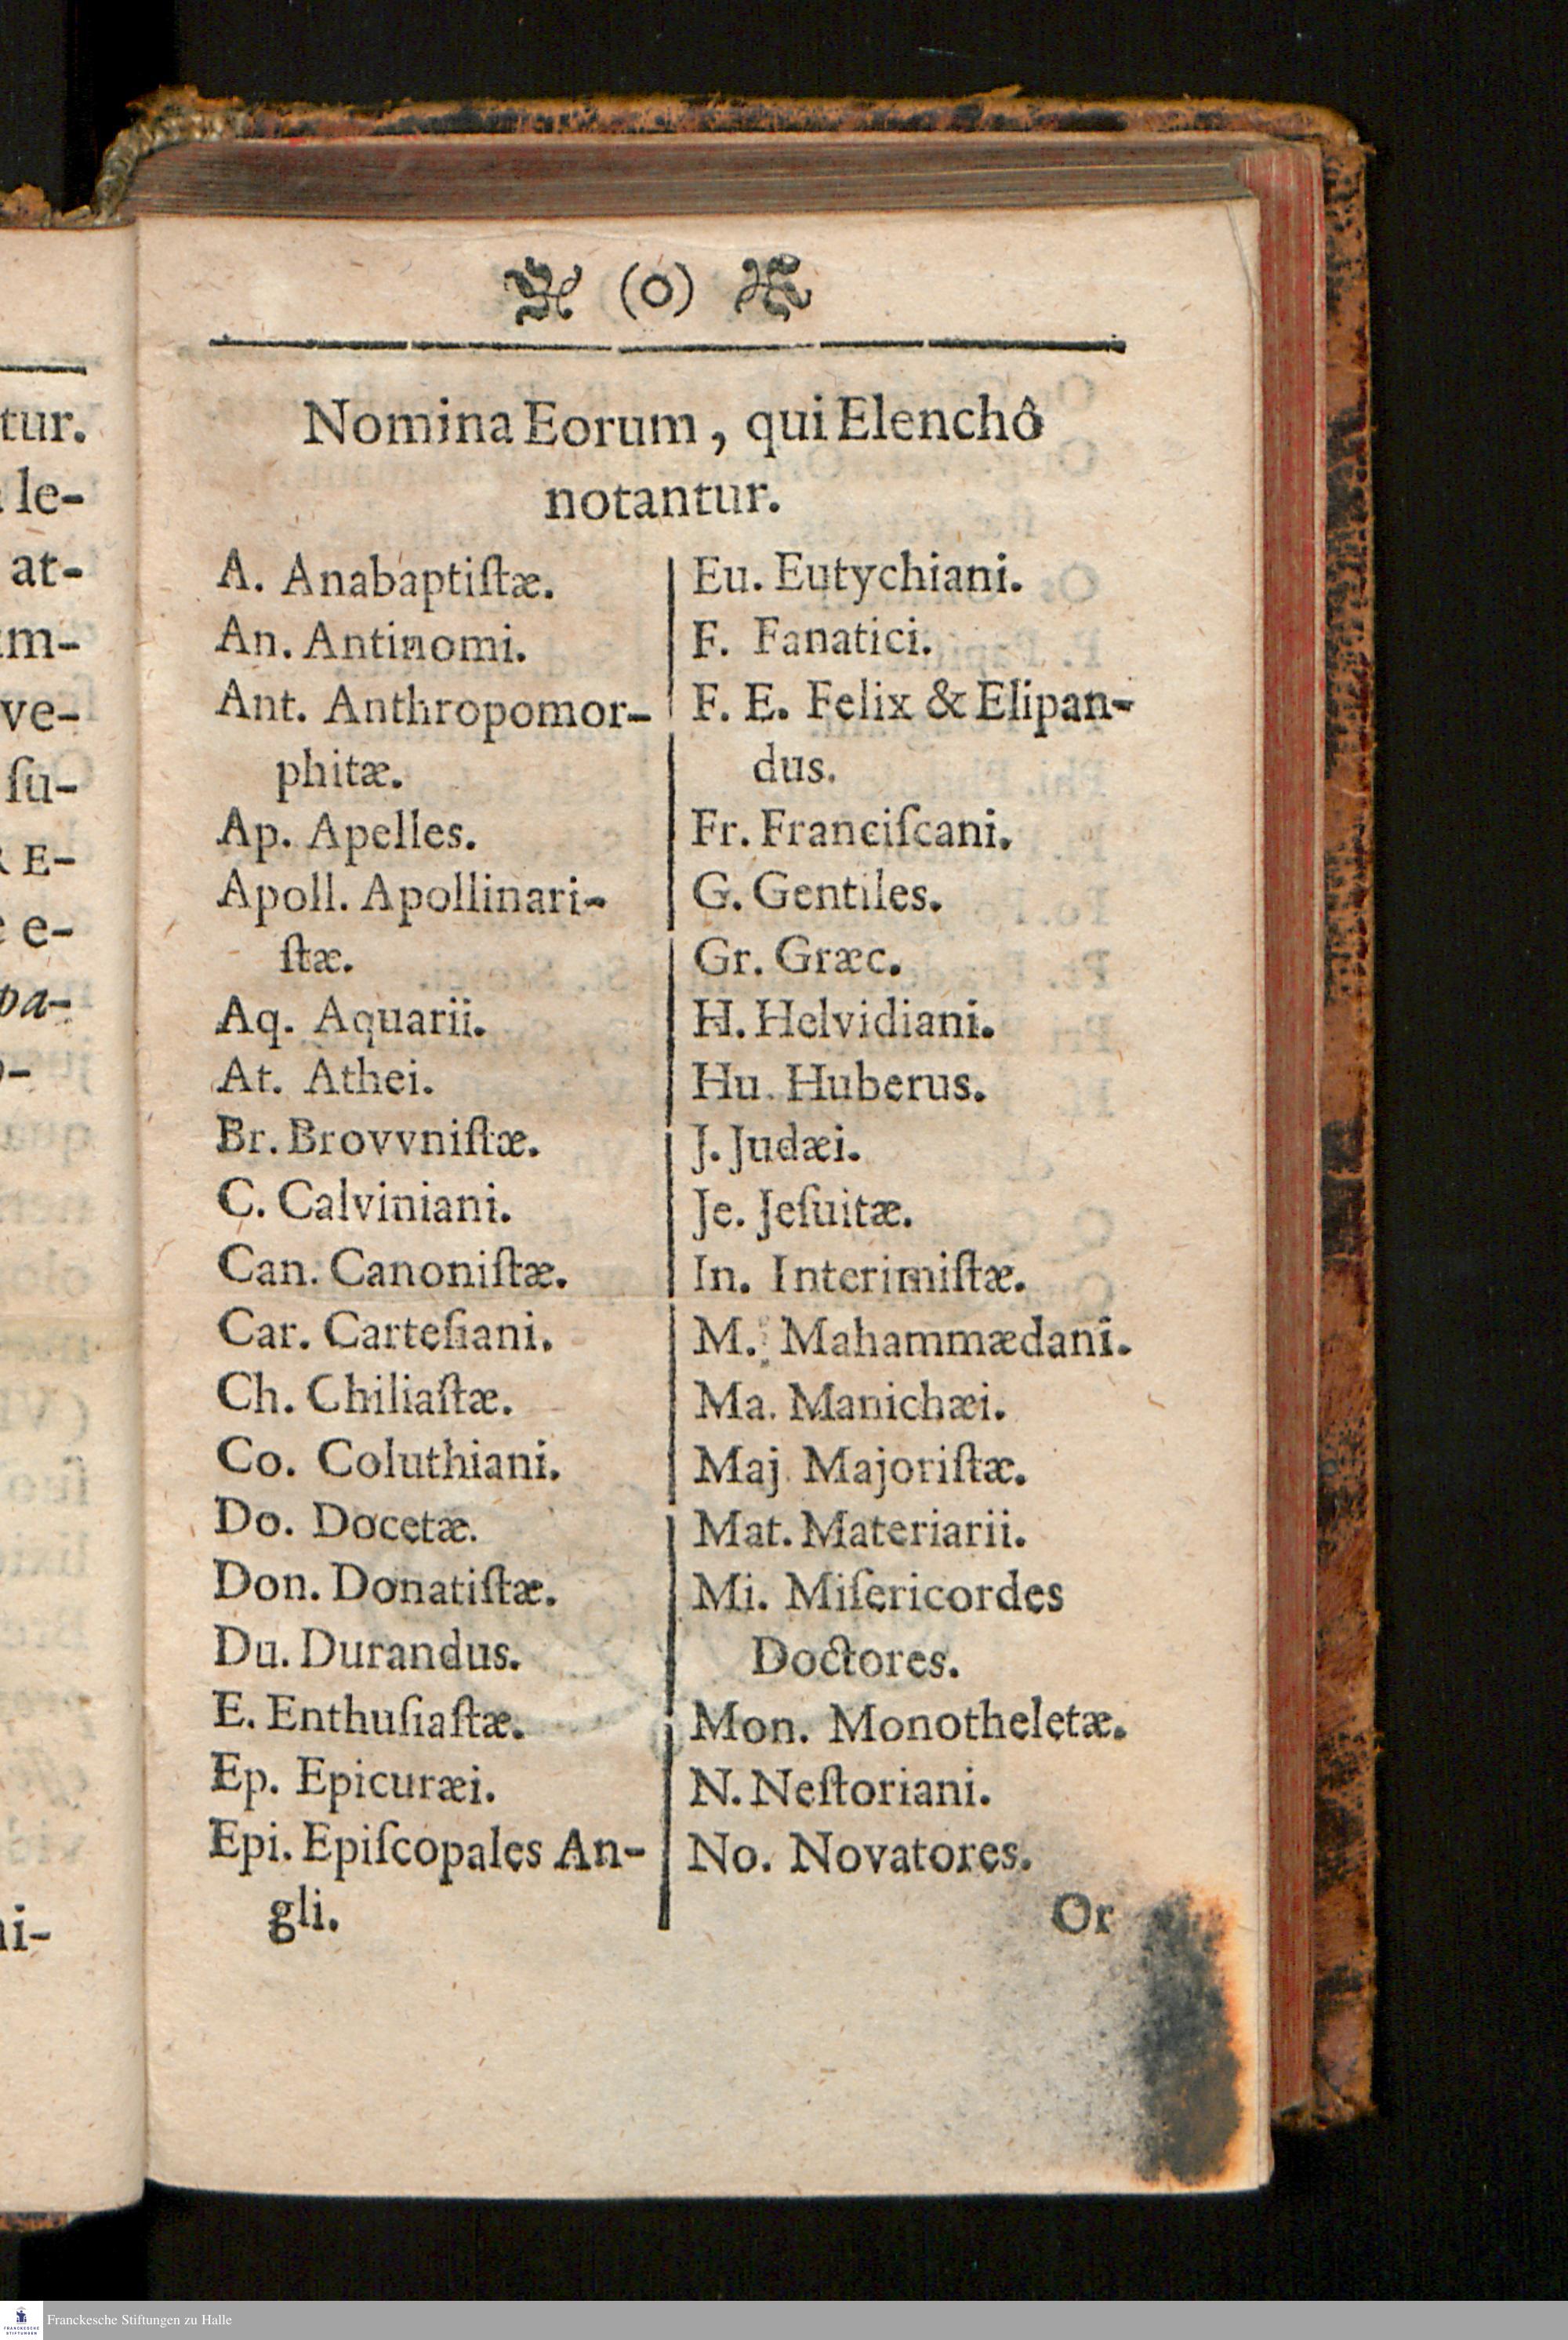 (o)
Nomina Eorum, qui Elenchô
notantur.
A. Anabaptiſtæ.
An. Antinomi.
Ant. Anthropomor-
phitæ.
Ap. Apelles.
Apoll. Apollinari-
ſtæ.
Aq. Aquarii.
At. Athei.
Br. Brovvniſtæ.
C. Calviniani.
Can. Canoniſtæ.
Car. Carteſiani.
Ch. Chiliaſtæ.
Co. Coluthiani.
Do. Docetæ.
Don. Donatiſtæ.
Du. Durandus.
E. Enthuſiaſtæ.
Ep. Epicuræi.
Epi. Epiſcopales An-
gli.
Eu. Eutychiani.
F. Fanatici.
F. E. Felix & Elipan-
dus.
Fr. Franciſcani.
G. Gentiles.
Gr. Græc.
H. Helvidiani.
Hu. Huberus.
J. Judæi.
Je. Jeſuitæ.
In. Interimiſtæ.
M. Mahammædani.
Ma. Manichæi.
Maj. Majoriſtæ.
Mat. Materiarii.
Mi. Miſericordes
Doctores.
Mon. Monotheletæ.
N. Neſtoriani.
No. Novatores.
Or
tur.
le-
at-
ve-
ſu-
E-
e-
Franckesche Stiftungen zu Halle
FRANCKESCHE
STIFTUNGEN